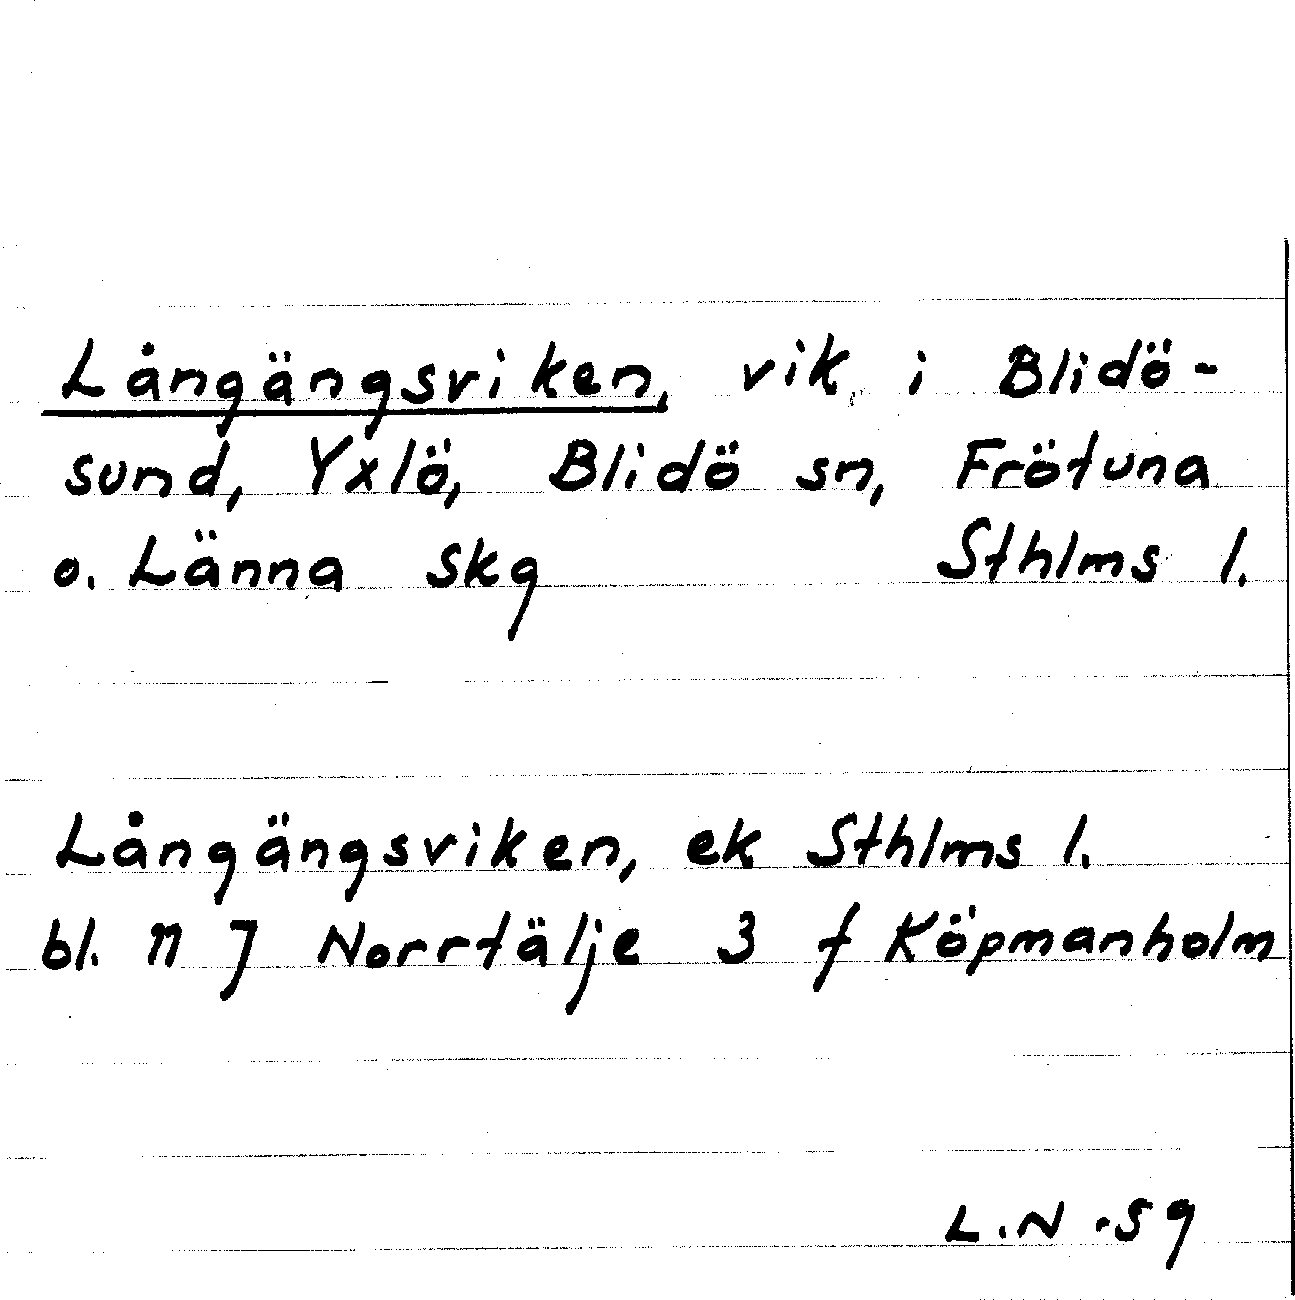 Långängsviken, vik i Blidö-
sund, Yxlö, Blidö sn, Frötuna
o. Länna skg Sthlms l.
Långängsviken, ek Sthlms l.
bl. n J Norrtälje 3 f Köpmanholm
L.N -59